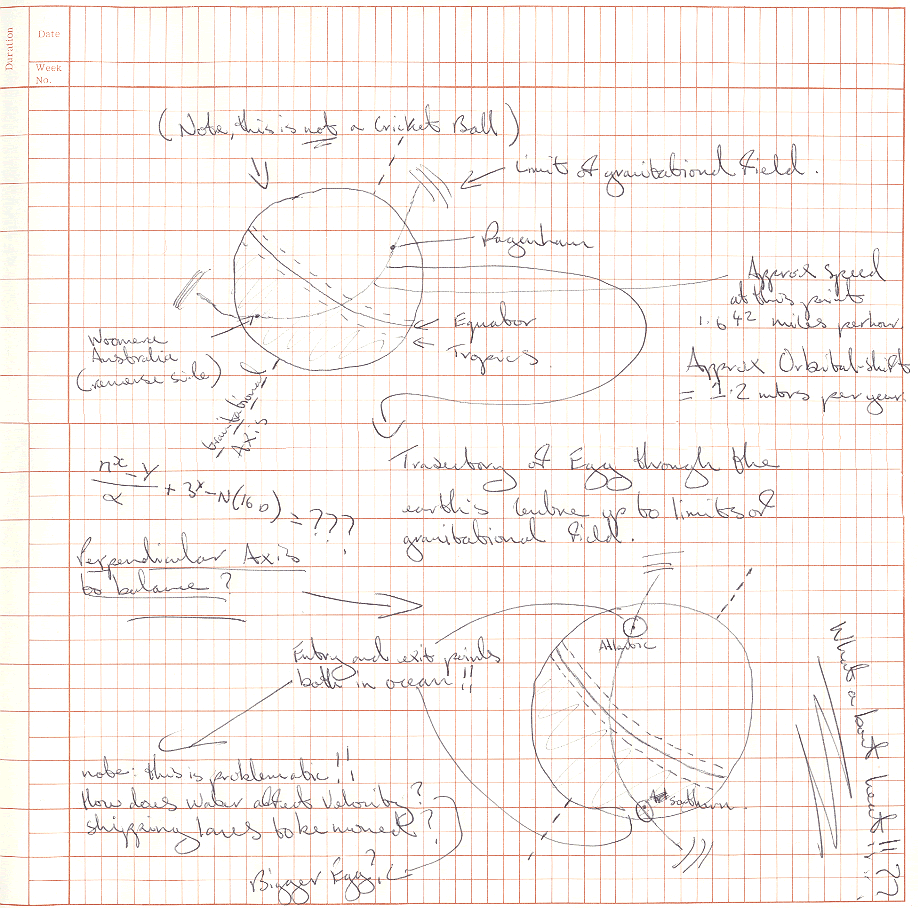 Duration
Date
Week
No.
(Note, this is not a Cricket Ball)
Limit of gravitational Field.
Dagenham
Approx speed
at this point
1.642 miles per hour
Equator
Tropics
Woomera
Australia
(reverse side)
Gravitational
Axis
Approx Orbital shift
= 1.2 mtrs per year
Trajectory of Egg through the
earth's centre up to limits of
gravitational field.
nx - y
α
+ 3x - N(160) = ???
Perpendicular Axis
to balance?
Entry and exit points
both in ocean!!
Atlantic
Southern
note: this is problematic!!
How does water affect velocity?
shipping lanes to be moved?
Bigger Egg?
What about heat!!??